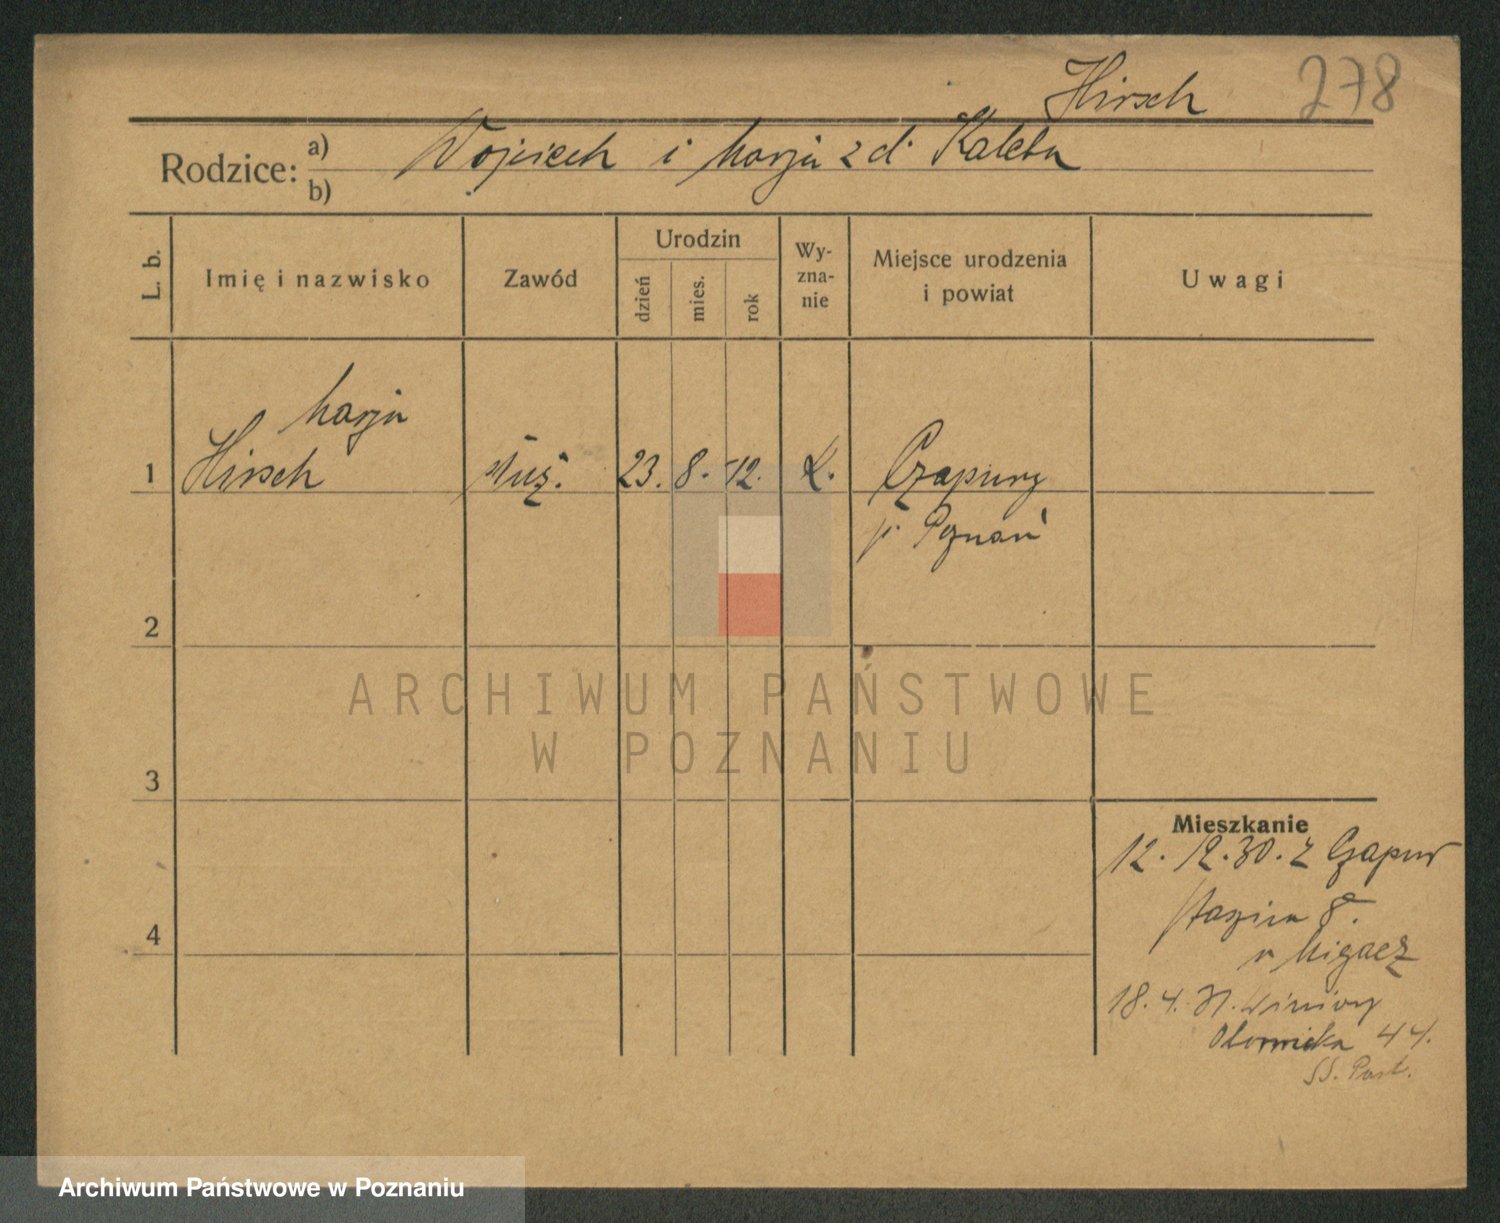 Hirsch 278
Rodzice: a) Wojciech i Marja z d. Kaleta
b)
L. b.
Imię i nazwisko
Zawód
Urodzin
dzień
mies.
rok
Wy-
zna-
nie
Miejsce urodzenia
i powiat
Uwagi
Marja
1 Hirsch służ. 23. 8. 12. k. Czapury
p. Poznań
2
3
4
Mieszkanie
12. 12. 30. z Czapur
Staszica 8.
u Migacz
18. 4. 31. Winiary
Obornicka 44.
SS.
ARCHIWUM PAŃSTWOWE
W POZNANIU
Archiwum Państwowe w Poznaniu